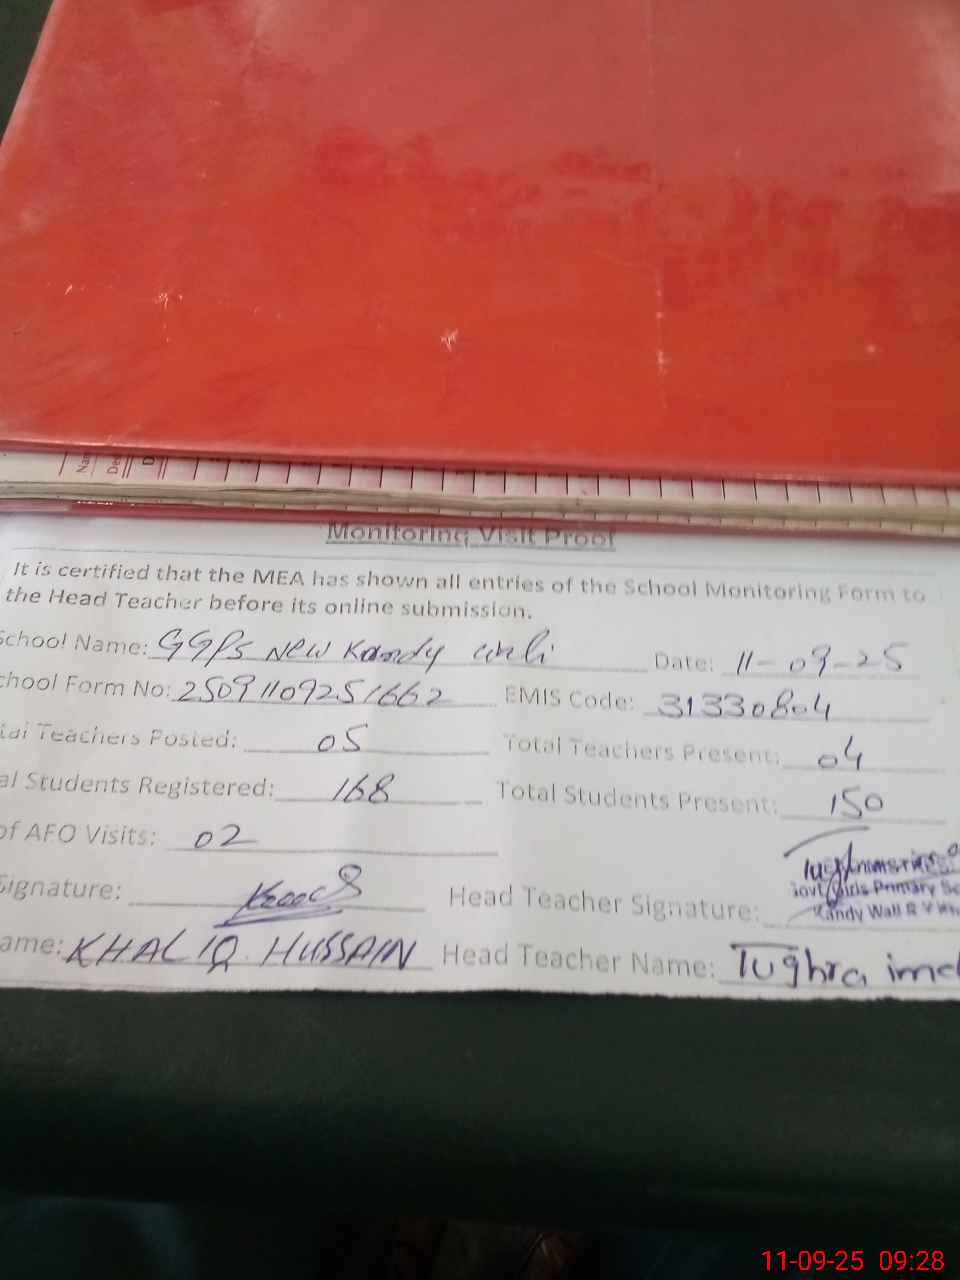 Nam
Dec
D
Monitoring Visit Proof
It is certified that the MEA has shown all entries of the School Monitoring Form to
the Head Teacher before its online submission.
School Name: GGPS New Kandy Wali Date: 11-09-25
chool Form No: 25091109251662 EMIS Code: 31330804
tal Teachers Posted: 05 Total Teachers Present: 04
al Students Registered: 168 Total Students Present: 150
of AFO Visits: 02
Signature: Head Teacher Signature:
Govt Girls Primary Sc
Kandy Wali
ame: KHALIQ HUSSAIN Head Teacher Name: Tughra imd
11-09-25 09:28